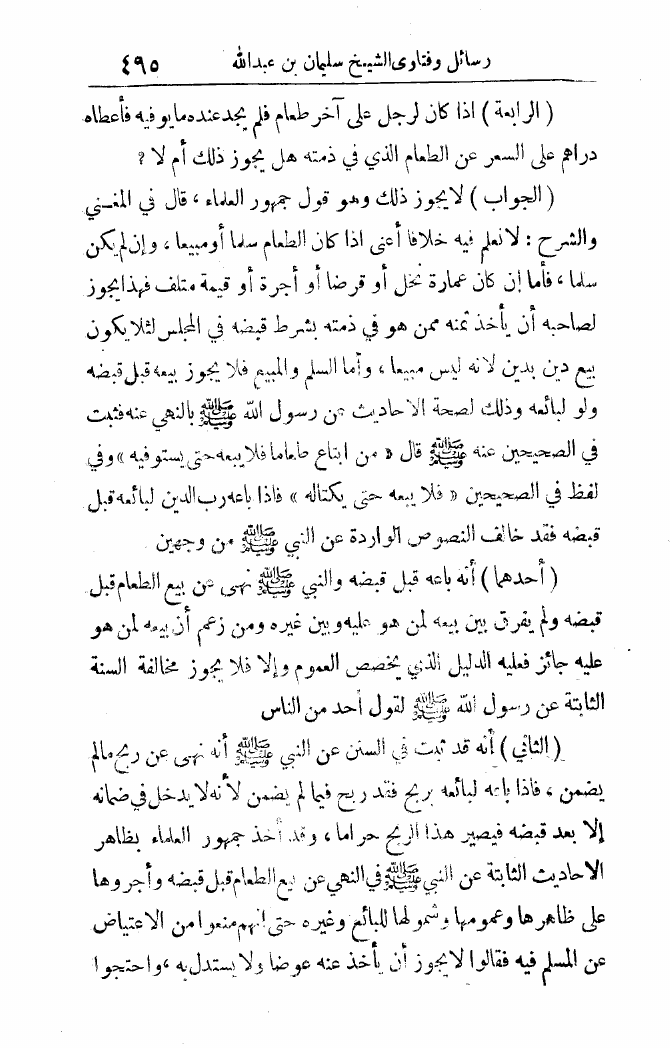 رسائل وفتاوى الشيخ سليمان بن عبدالله ٤٩٥
( الرابعة ) اذا كان لرجل على آخر طعام فلم يجد عنده ما يوفيه فأعطاه
دراهم على السعر عن الطعام الذي في ذمته هل يجوز ذلك أم لا ؟
( الجواب ) لا يجوز ذلك وهو قول جمهور العلماء ، قال في المغني
والشرح : لا نعلم فيه خلافا أعنى اذا كان الطعام سلما أو مبيعا ، وإن لم يكن
سلما ، فأما إن كان عمارة نخل أو قرضا أو أجرة أو قيمة متلف فهذا يجوز
لصاحبه أن يأخذ ثمنه ممن هو في ذمته بشرط قبضه في المجلس لئلا يكون
بيع دين بدين لانه ليس مبيعا ، وأما السلم والمبيع فلا يجوز بيعه قبل قبضه
ولو لبائعه وذلك لصحة الاحاديث عن رسول الله ﷺ بالنهي عنه فثبت
في الصحيحين عنه ﷺ قال « من ابتاع طعاما فلا يبعه حتى يستوفيه » وفي
لفظ في الصحيحين « فلا يبعه حتى يكتاله » فاذا باعه رب الدين لبائعه قبل
قبضه فقد خالف النصوص الواردة عن النبي ﷺ من وجهين
( أحدهما ) أنه باعه قبل قبضه والنبي ﷺ نهى عن بيع الطعام قبل
قبضه ولم يفرق بين بيعه لمن هو عليه وبين غيره ومن زعم أن بيعه لمن هو
عليه جائز فعليه الدليل الذي يخصص العموم وإلا فلا يجوز مخالفة السنة
الثابتة عن رسول الله ﷺ لقول أحد من الناس
( الثاني ) أنه قد ثبت في السنن عن النبي ﷺ أنه نهى عن ربح مالم
يضمن ، فاذا باعه لبائعه بربح فقد ربح فيما لم يضمن لأنه لا يدخل في ضمانه
إلا بعد قبضه فيصير هذا الربح حراما ، وقد أخذ جمهور العلماء بظاهر
الاحاديث الثابتة عن النبي ﷺ في النهي عن بيع الطعام قبل قبضه وأجروها
على ظاهرها وعمومها وشمولها للبائع وغيره حتى انهم منعوا من الاعتياض
عن المسلم فيه فقالوا لا يجوز أن يأخذ عنه عوضا ولا يستدل به ، واحتجوا